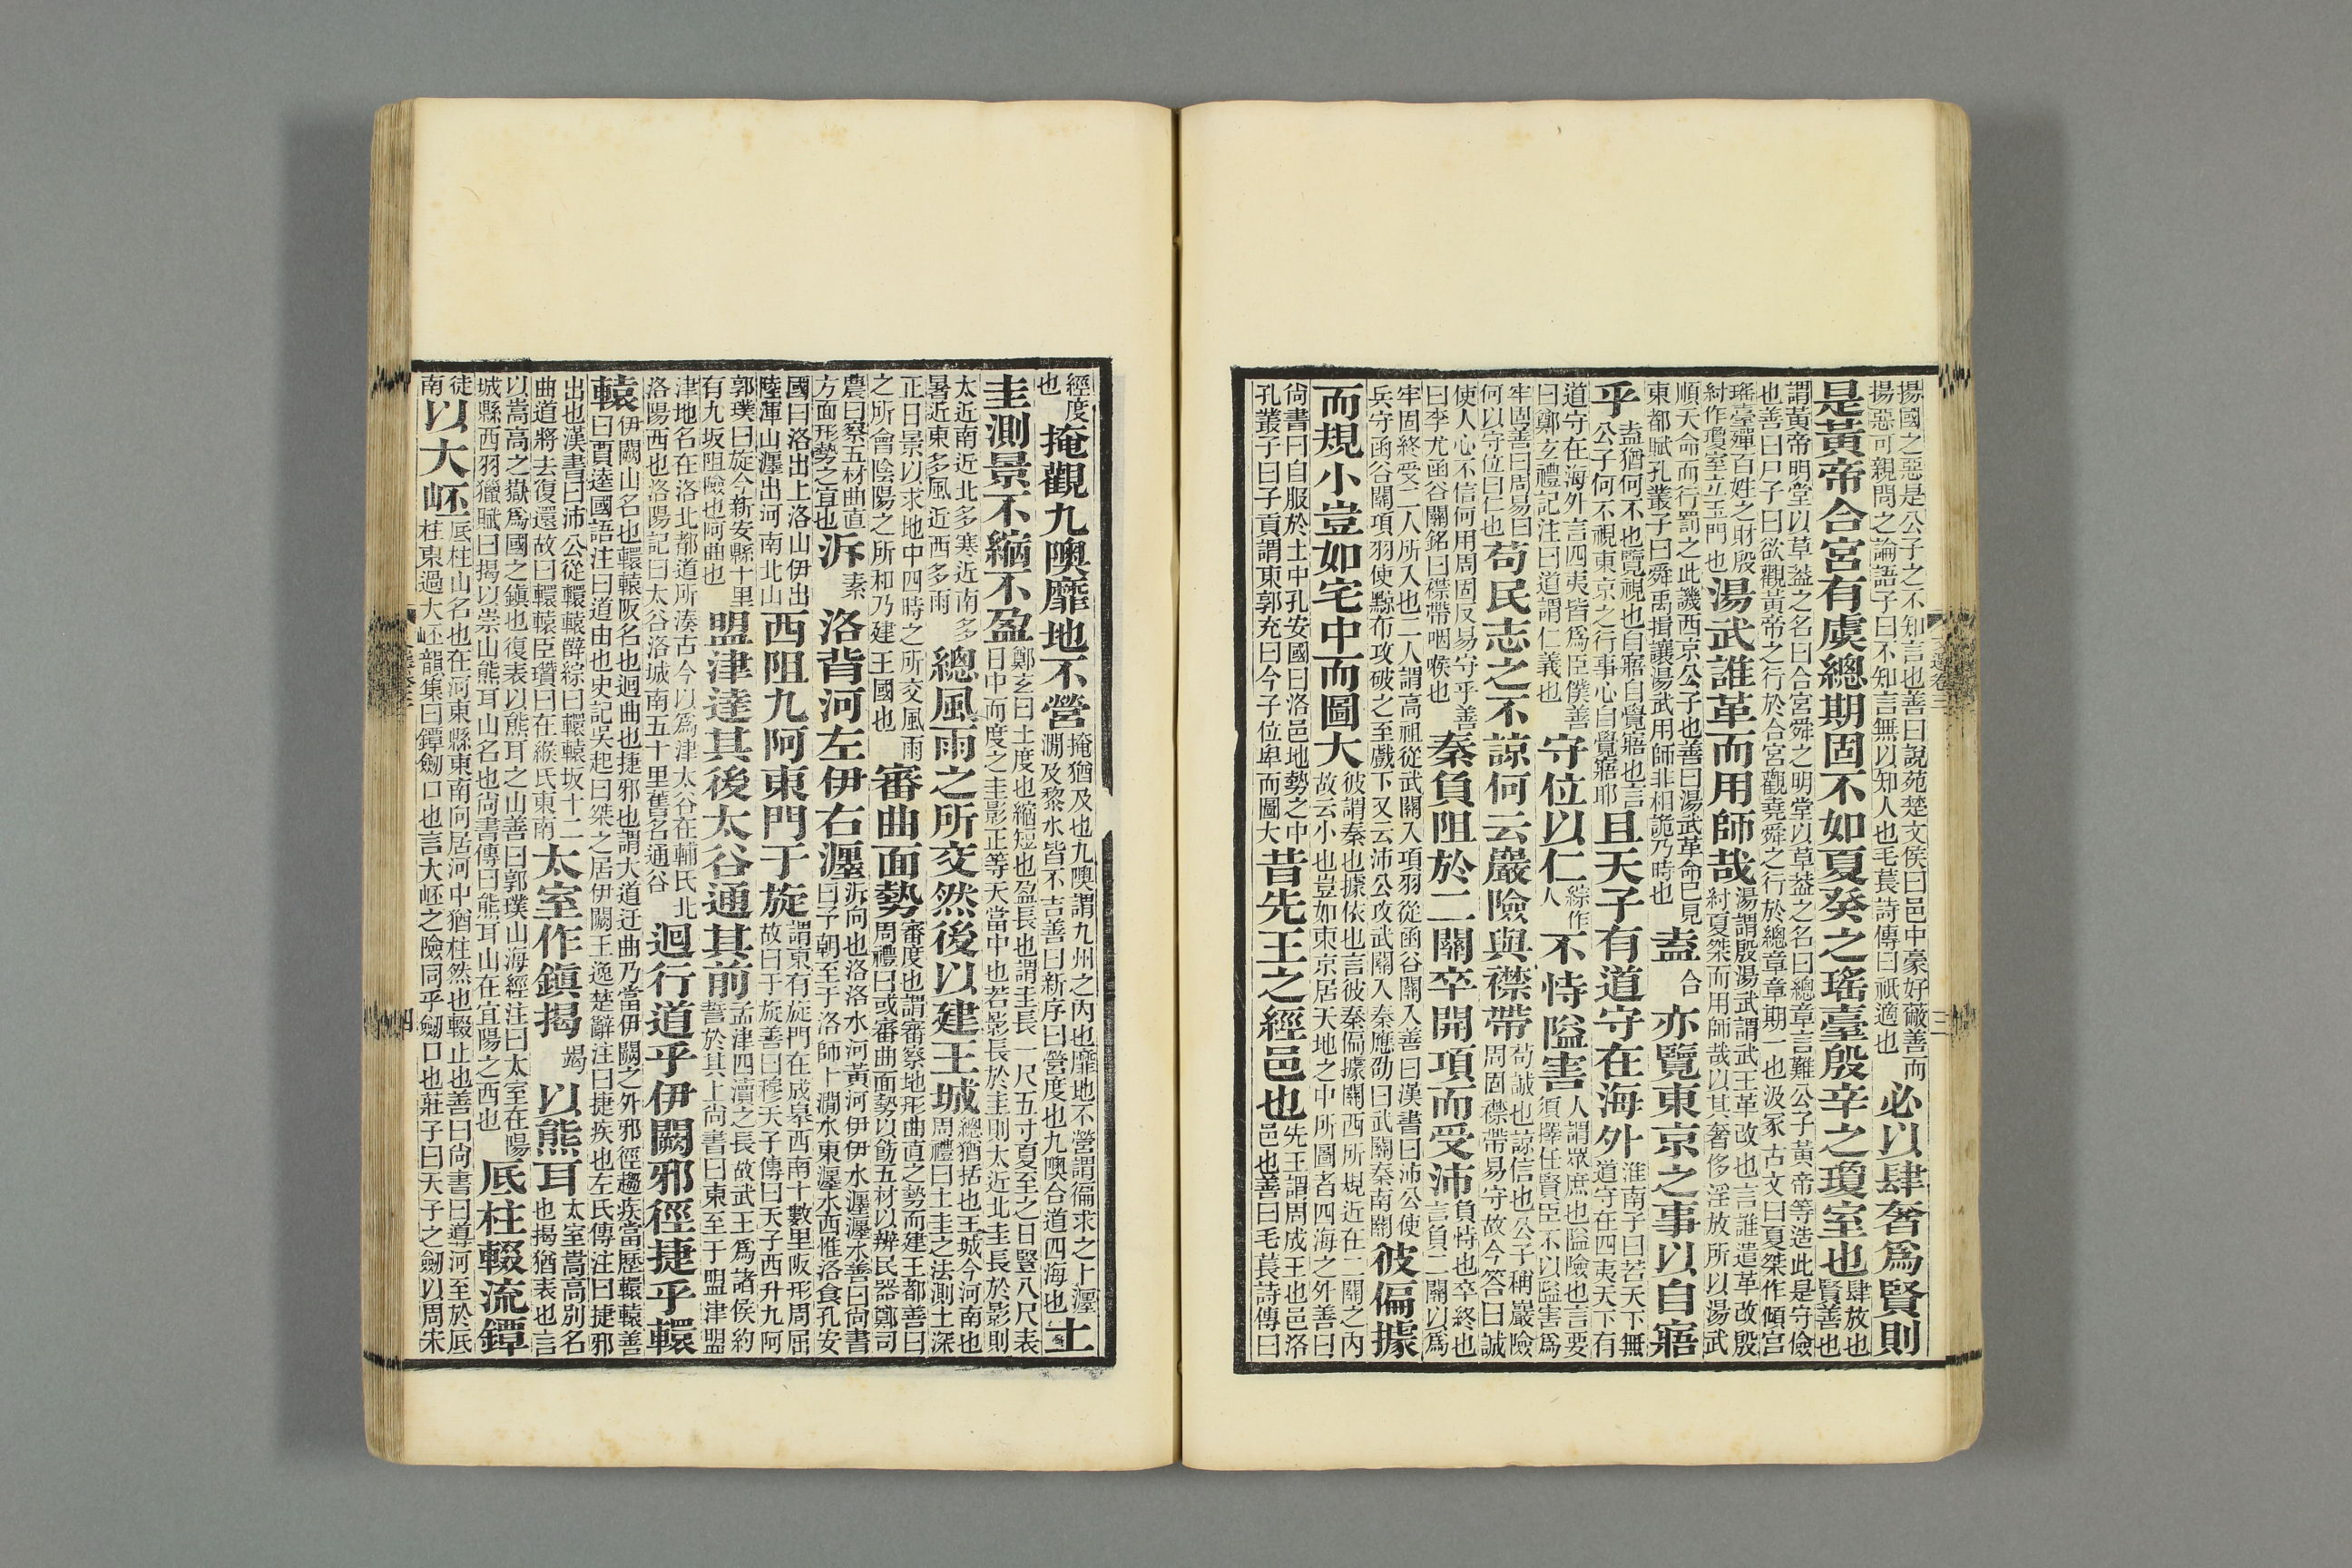 揚國之惡是公子之不知言也善曰說苑楚文侯曰邑中豪好蔽善而
揚惡可親問之論語子曰不知言無以知人也毛萇詩傳曰祇適也
必以肆奢爲賢則
是黃帝合宮有虞總期固不如夏癸之瑤臺殷辛之瓊室也
肆放也
賢善也
謂黃帝明堂以草葢之名曰合宮舜之明堂以草葢之名曰總章言難公子黃帝等造此是守儉
也善曰尸子曰欲觀黃帝之行於合宮觀堯舜之行於總章章期一也汲冢古文曰夏桀作傾宮
瑤臺殫百姓之財殷
紂作瓊室立玉門也
湯武誰革而用師哉
湯謂殷湯武謂武王革改也言誰遣革改殷
紂夏桀而用師哉以其奢侈淫放所以湯武
順天命而行罰之此譏西京公子也善曰湯武革命已見
東都賦孔叢子曰舜禹揖讓湯武用師非相詭乃時也
盍
合
亦覽東京之事以自寤
乎
盍猶何不也覽視也自寤自覺寤也言
公子何不視東京之行事心自覺寤耶
且天子有道守在海外
淮南子曰若天下無
道守在四夷天下有
道守在海外言四夷皆爲臣僕善
曰鄭玄禮記注曰道謂仁義也
守位以仁
綜作
人
不恃隘害
人謂眾庶也隘險也言要
須擇任賢臣不以隘害爲
牢固善曰周易曰
何以守位曰仁也
苟民志之不諒何云巖險與襟帶
苟誠也諒信也公子稱巖險
周固襟帶易守故今答曰誠
使人心不信何用周固及易守乎善
曰李尤函谷關銘曰襟帶咽喉也
秦負阻於二關卒開項而受沛
負恃也卒終也
言負二關以爲
牢固終受二人所入也二人謂高祖從武關入項羽從函谷關入善曰漢書曰沛公使
兵守函谷關項羽使黥布攻破之至戲下又云沛公攻武關入秦應劭曰武關秦南關
彼偏據
而規小豈如宅中而圖大
彼謂秦也據依也言彼秦偏據關西所規近在二關之內
故云小也豈如東京居天地之中所圖者四海之外善曰
尚書曰自服於土中孔安國曰洛邑地勢之中
孔叢子曰子貢謂東郭充曰今子位卑而圖大
昔先王之經邑也
先王謂周成王也邑洛
邑也善曰毛萇詩傳曰
文選卷三
三
經度
也
掩觀九隩靡地不營
掩猶及也九隩謂九州之內也靡地不營謂偏求之卜瀍
澗及黎水皆不吉善曰新序曰營度也九隩合道四海也
土
圭測景不縮不盈
鄭玄曰土度也縮短也盈長也謂圭長一尺五寸夏至之日豎八尺表
日中而度之圭影正等天當中也若影長於圭則太近北圭長於影則
太近南近北多寒近南多
暑近東多風近西多雨
總風雨之所交然後以建王城
總猶括也王城今河南也
周禮曰土圭之法測土深
正日景以求地中四時之所交風雨
之所會陰陽之所和乃建王國也
審曲面勢
審度也謂審察地形曲直之勢而建王都善曰
周禮曰或審曲面勢以飭五材以辨民器鄭司
農曰察五材曲直
方面形勢之宜也
泝
素
洛背河左伊右瀍
泝向也洛洛水河黃河伊伊水瀍瀍水善曰尚書
曰予朝至于洛師卜澗水東瀍水西惟洛食孔安
國曰洛出上洛山伊出
陸渾山瀍出河南北山
西阻九阿東門于旋
謂東有旋門在成皋西南十數里阪形周屈
故曰于旋善曰穆天子傳曰天子西升九阿
郭璞曰旋今新安縣十里
有九坂阻險也阿曲也
盟津達其後太谷通其前
孟津四瀆之長故武王爲諸侯約
誓於其上尚書曰東至于盟津盟
津地名在洛北都道所湊古今以爲津太谷在輔氏北
洛陽西也洛陽記曰太谷洛城南五十里舊名通谷
迴行道乎伊闕邪徑捷乎轘
轅
伊闕山名也轘轅阪名也迴曲也捷邪也謂大道迂曲乃當伊闕之外邪徑趨疾當歷轘轅善
曰賈逵國語注曰道由也史記吳起曰桀之居伊闕王逸楚辭注曰捷疾也左氏傳注曰捷邪
出也漢書曰沛公從轘轅薛綜曰轘轅坂十二
曲道將去復還故曰轘轅臣瓚曰在緱氏東南
太室作鎮揭
竭
以熊耳
太室嵩高別名
也揭猶表也言
以嵩高之嶽爲國之鎮也復表以熊耳之山善曰郭璞山海經注曰太室在陽
城縣西羽獵賦曰揭以崇山熊耳山名也尚書傳曰熊耳山在宜陽之西也
厎柱輟流鐔
徒
南
以大岯
厎柱山名也在河東縣東南向居河中猶柱然也輟止也善曰尚書曰導河至於厎
柱東過大岯龍集曰鐔劒口也言大岯之險同乎劒口也莊子曰天子之劒以周朱